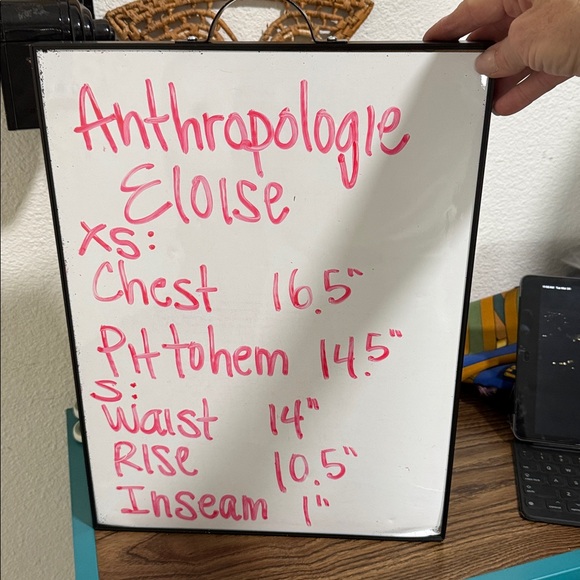 Anthropologie
Eloise
XS:
Chest 16.5"
Pit to hem 14.5"
S:
Waist 14"
Rise 10.5"
Inseam 1"